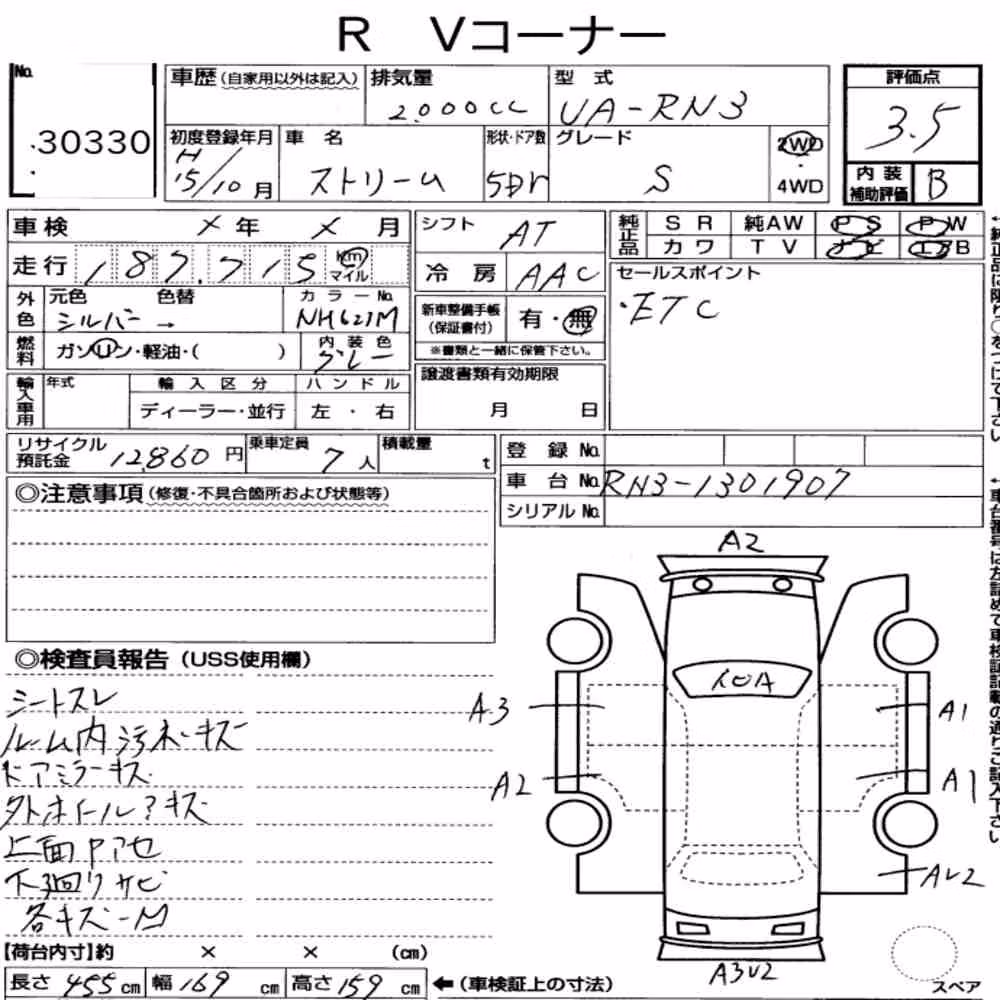 R Vコーナー
No.
30330
車歴(自家用以外は記入)
排気量
2.000cc
型 式
UA-RN3
評価点
3.5
初度登録年月
H
15/10月
車 名
ストリーム
形状・ドア数
5Dr
グレード
S
2WD
・
4WD
内 装
補助評価
B
車検 × 年 × 月
走行 187.715 km
マイル
シフト AT
冷 房 AAC
純正品
S R 純AW P S P W
カワ T V ナビ エアB
外色
元色 色替
シルバー →
カラーNo.
NH627M
燃料
ガソリン・軽油・( )
内 装 色
グレー
新車整備手帳
(保証書付)
有・無
※書類と一緒に保管下さい。
セールスポイント
・ETC
輸入車用
年式
輸 入 区 分
ディーラー・並行
ハ ン ド ル
左 ・ 右
譲渡書類有効期限
月 日
リサイクル
預託金 12,860 円
乗車定員
7 人
積載量
t
登 録 No.
車 台 No. RN3-1301907
シリアル No.
◎注意事項(修復・不具合箇所および状態等)
◎検査員報告(USS使用欄)
シートスレ
ルーム内汚れ・キズ
ドアミラーキズ
外ホイールアキズ
上面Pアセ
下廻りサビ
各キズ-M
【荷台内寸】約 × × (cm)
長さ 455 cm 幅 169 cm 高さ 159 cm ←(車検証上の寸法)
A2
A3
A1
A2
A1
AU2
A3U2
スペア
←純正品に限り○をつけて下さい
←車台番号は左詰めで車検証記載の通りご記入下さい